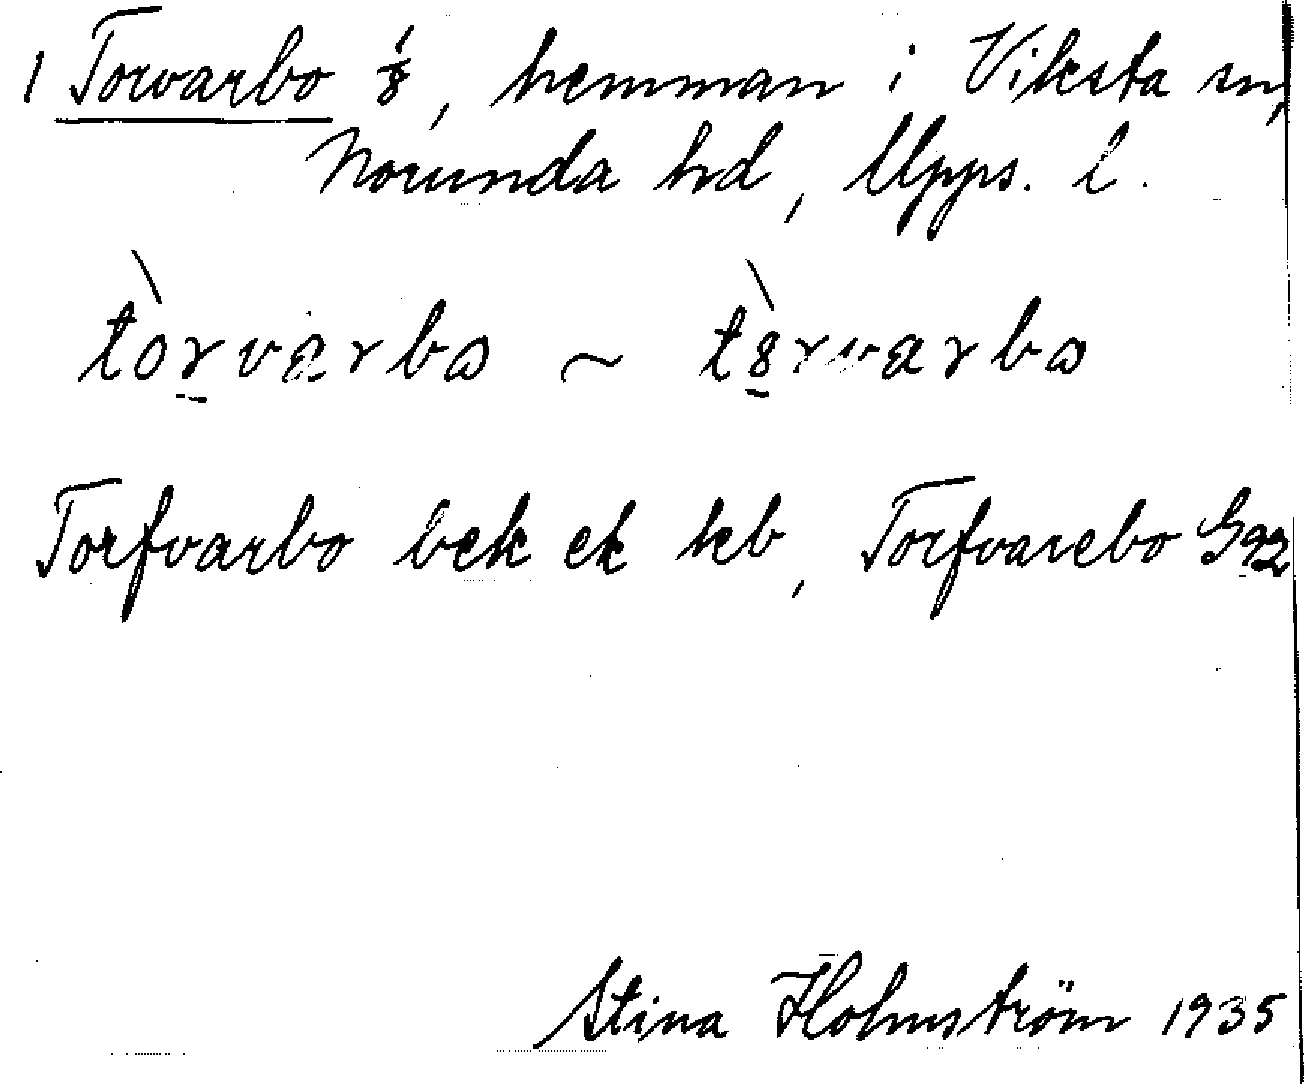 1 Torvarbo ⅛, hemman i Viksta sn,
Norunda hd, Upps. l.
tòrvarbo ~ tò̱rvarbo
Torfvarbo bek ek kb, Torfvarebo G92
Stina Holmström 1935